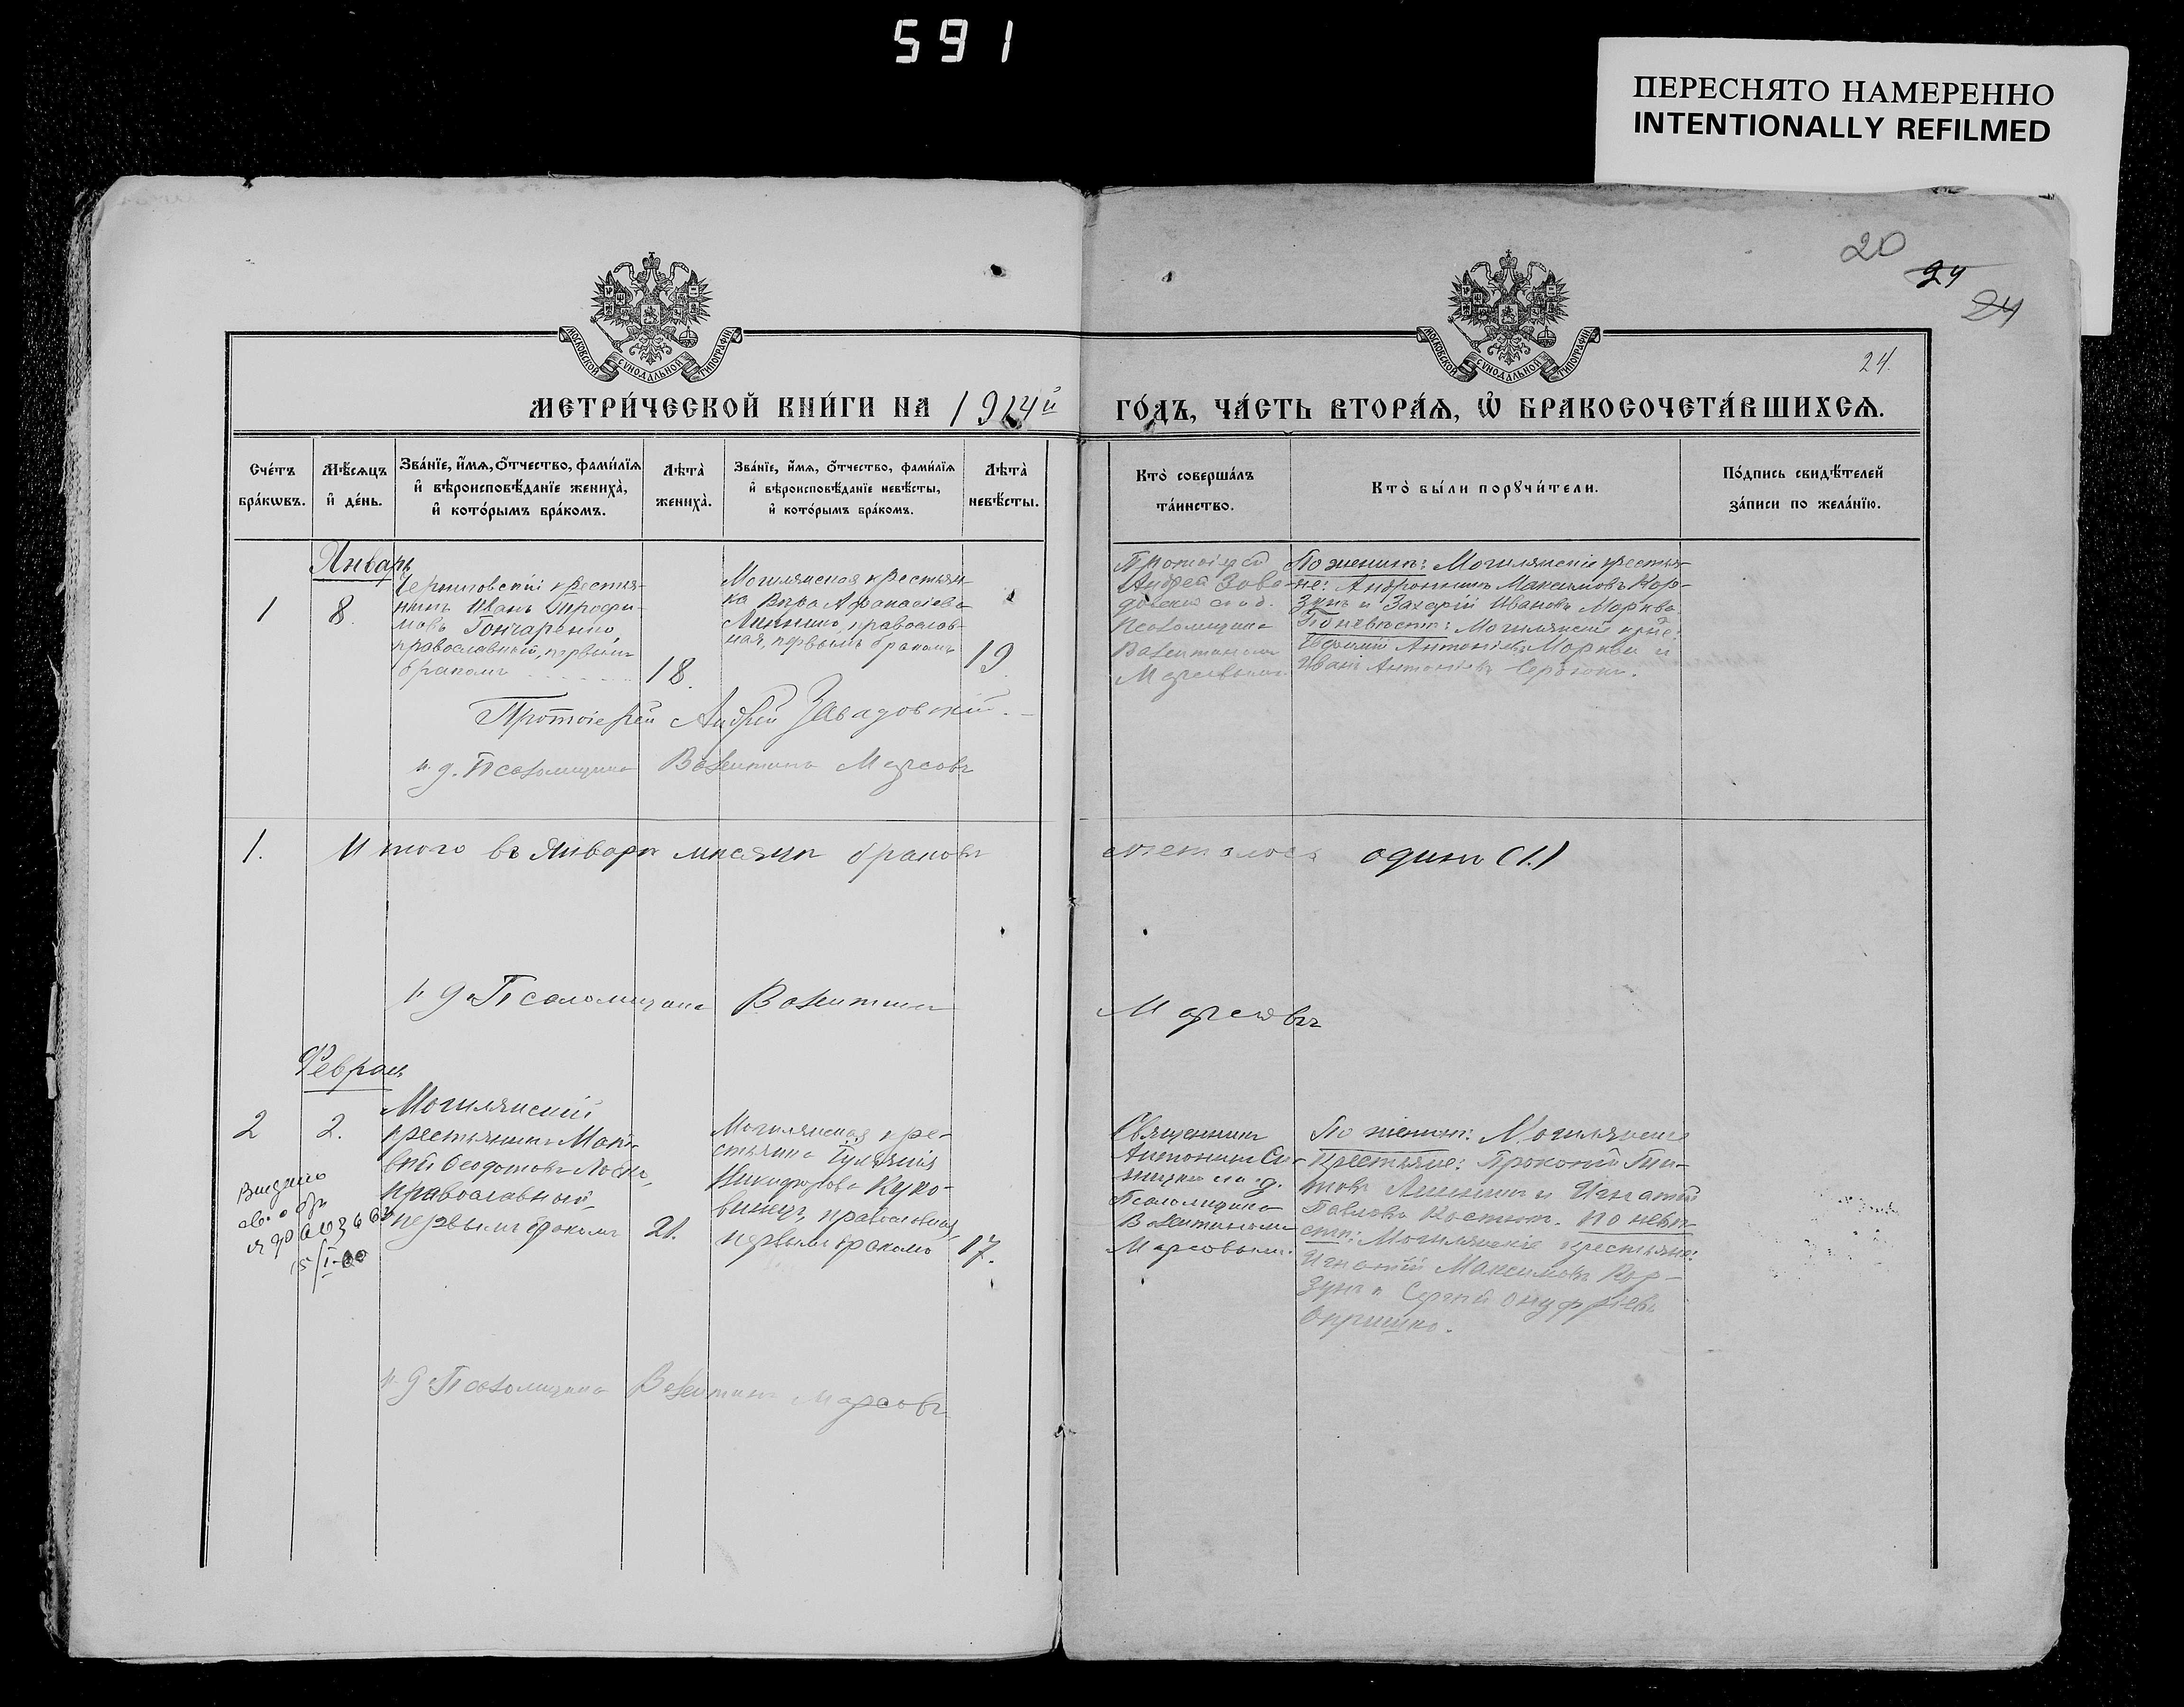 591
ПЕРЕСНЯТО НАМЕРЕННО
INTENTIONALLY REFILMED
20
24
24
24.
МОСКОВСКОЙ СѴНОДАЛЬНОЙ ТИПОГРАФІИ
МОСКОВСКОЙ СѴНОДАЛЬНОЙ ТИПОГРАФІИ
МЕТРИ́ЧЕСКОЙ КНИ́ГИ НА 1914й ГО́ДЪ, ЧА́СТЬ ВТОРА́Ѧ, Ѡ҆ БРАКОСОЧЕТА́ВШИХСѦ.
Сче́тъ бра́кѡвъ.
Мѣ́сѧцъ и҆ де́нь.
Зва́нїе, и҆́мѧ, ѻ҆́тчество, фами́лїѧ и҆ вѣроисповѣ́данїе жениха̀, и҆ кото́рымъ бра́комъ.
Лѣта̀ жениха̀.
Зва́нїе, и҆́мѧ, ѻ҆́тчество, фами́лїѧ и҆ вѣроисповѣ́данїе невѣ́сты, и҆ кото́рымъ бра́комъ.
Лѣта̀ невѣ́сты.
Кто̀ соверша́лъ та́инство.
Кто̀ бы́ли порꙋчи́тели.
По́дпись свидѣ́телей за́писи по жела́нїю.
Январь
1
8.
Черниговскій крестья-
нинъ Иванъ Трофи-
мовъ Гончаренко,
православный, первымъ
бракомъ
18.
Могилянская крестьян-
ка Вѣра Афанасіева
православ-
ная, первымъ бракомъ
19.
Протоіерей
Андрей Зава-
довскій съ и. д.
Псаломщика
Валентиномъ
Марсовымъ.
По женихѣ: Могилянскіе крестья-
не: Андроникъ Максимовъ Кор-
зунъ и Захарій Ивановъ Морква.
По невѣстѣ: Могилянскіе кре:
Антоніевъ Морква и
Иванъ Антоніевъ
Протоіерей Андрей Завадовскій.
и. д. Псаломщика Валентинъ Марсовъ
1.
Итого въ Январѣ мѣсяцѣ браковъ
состоялось одинъ (1.)
и. д. Псаломщика Валентинъ
Марсовъ
Февраль
2
2.
Могилянскій
крестьянинъ Мат-
вій Ѳеодотовъ
православный,
первымъ бракомъ
21.
Могилянская кре-
стьянка
Никифорова Куко-
винецъ, православная,
первымъ бракомъ
17.
Священникъ
Антонинъ Си-
ницкій съ и. д.
Псаломщика
Валентиномъ
Марсовымъ.
По женихѣ: Могилянскіе
крестьяне: Прокопій Ти-
товъ и Игнатій
Павловъ Костюкъ. По невѣ-
стѣ: Могилянскіе крестьяне:
Игнатій Максимовъ Кор-
зунъ и Сергѣй Онуфріевъ
Выдано
св. о бр.
и. д. Псаломщика Валентинъ Марсовъ